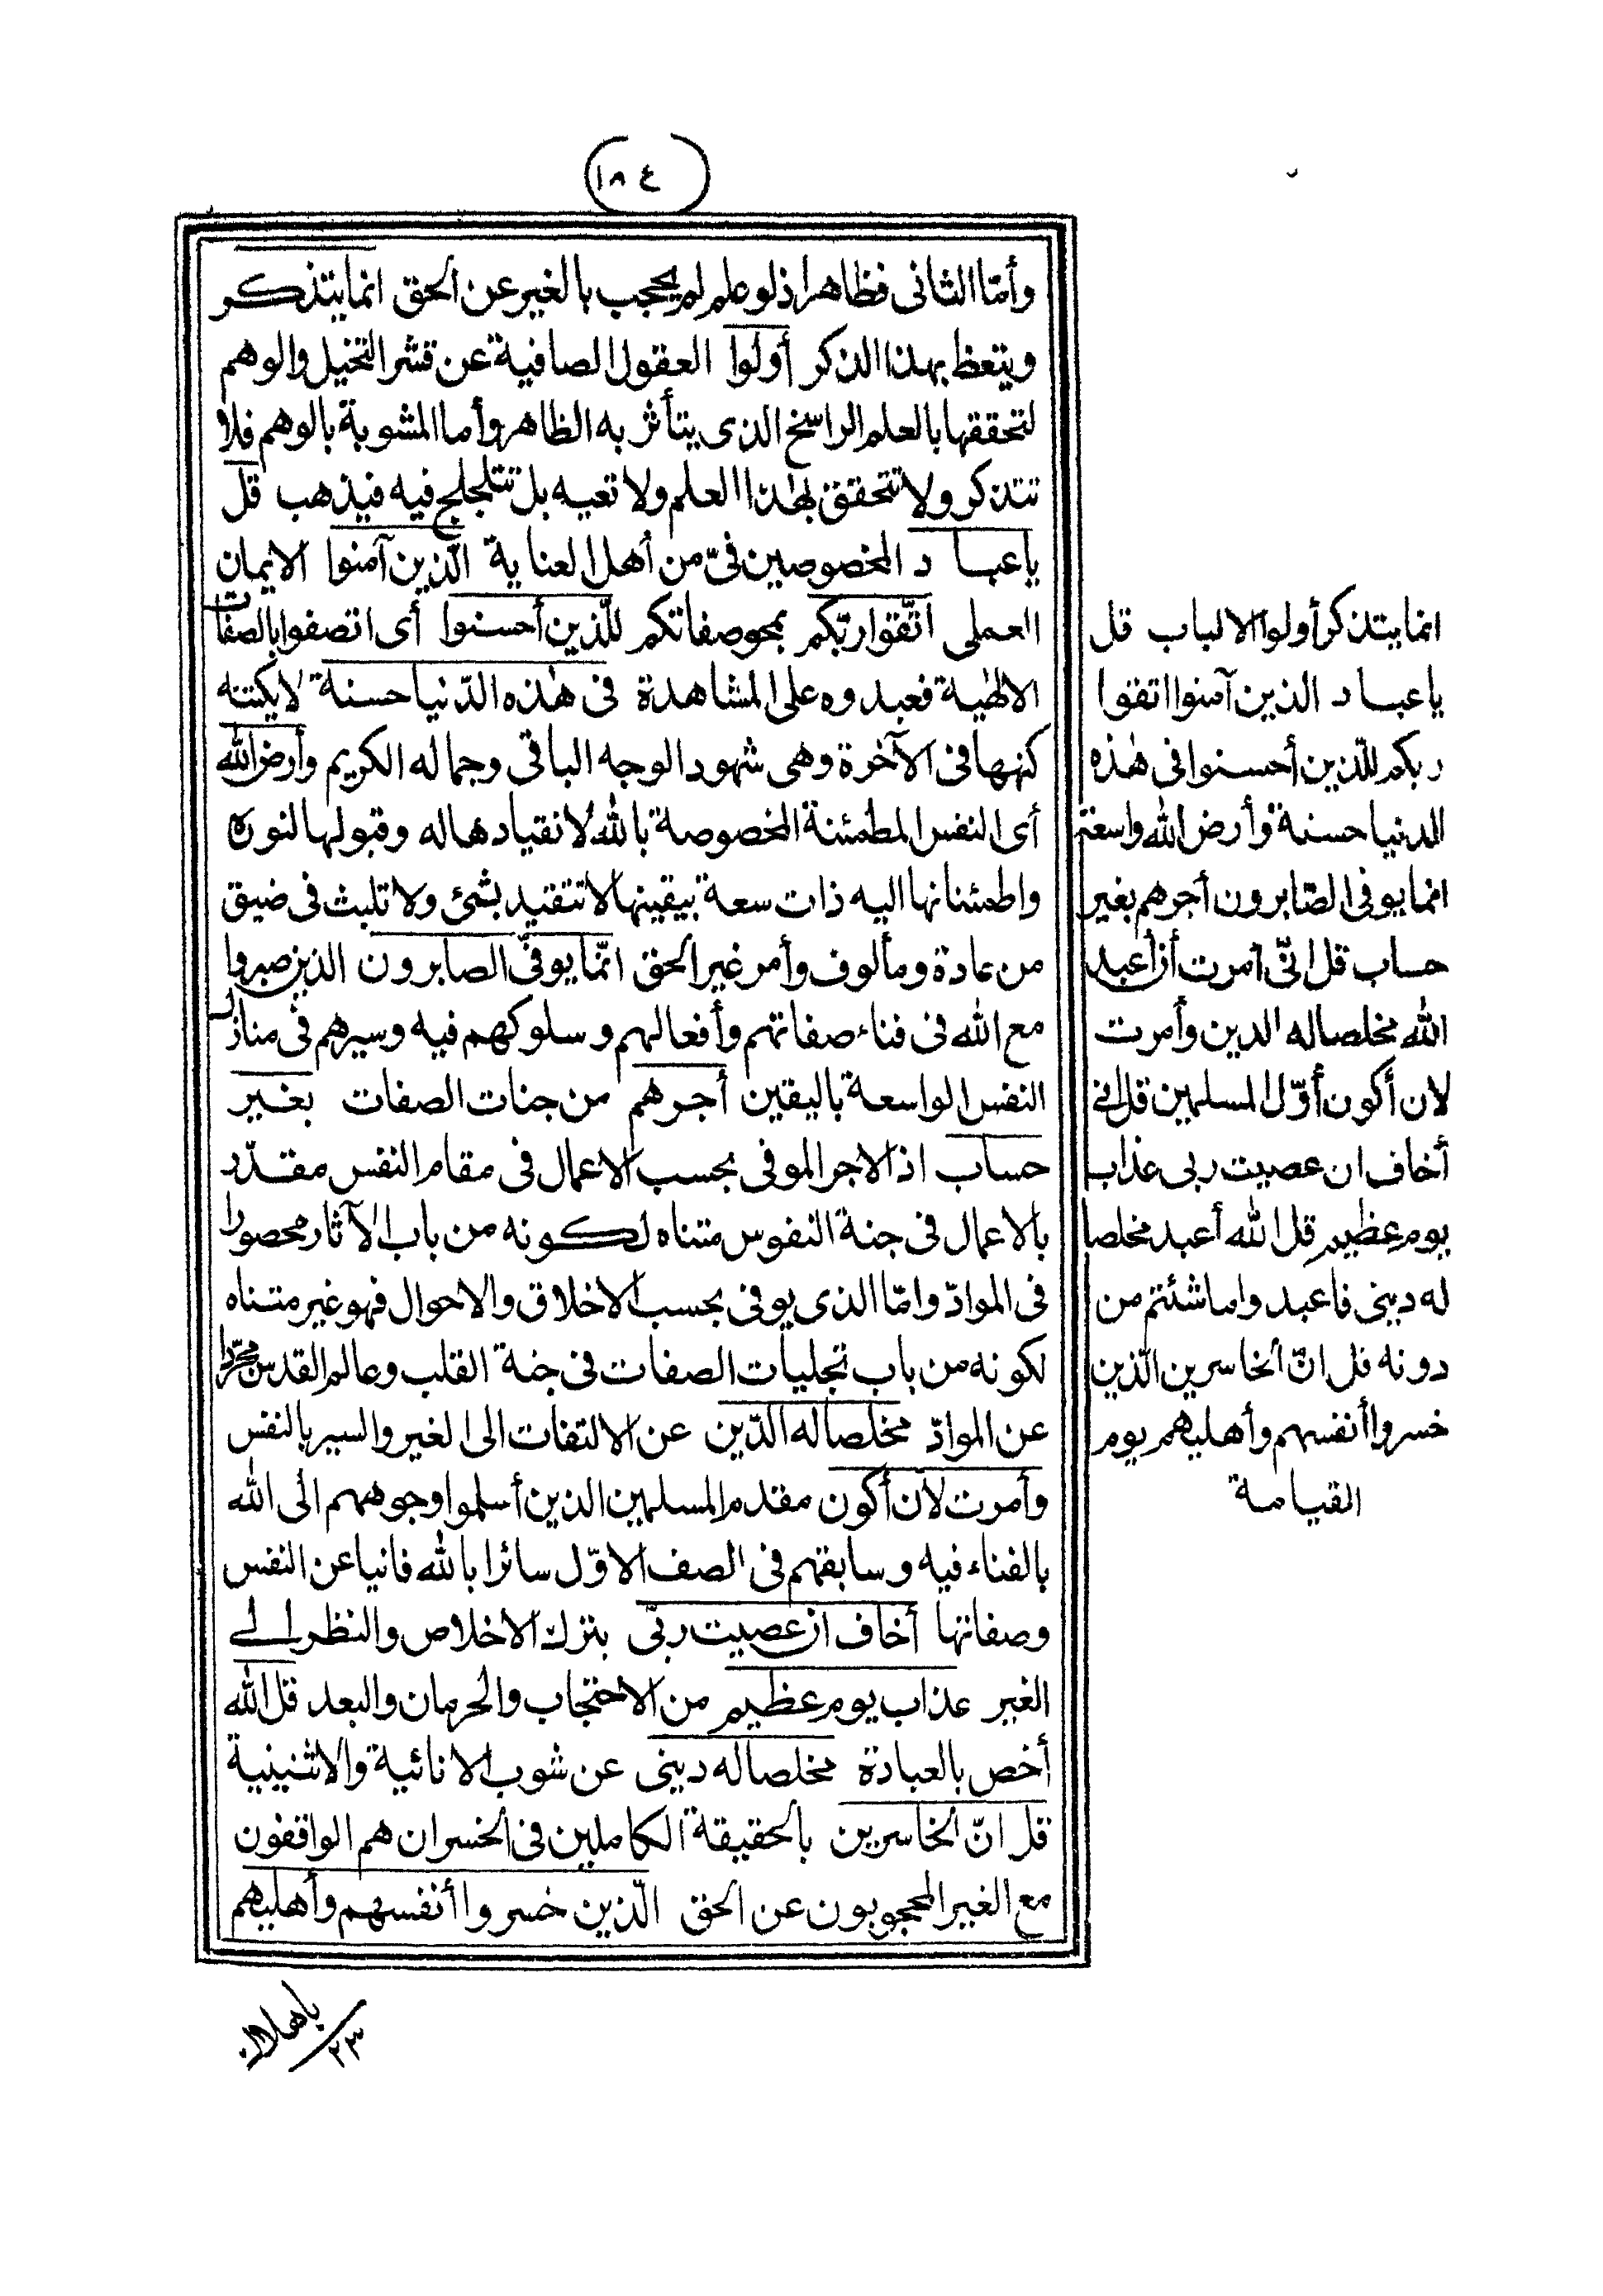 (١٨٤)
وأمّا الثانى فظاهر اذ لو علم لم يحجب بالغير عن الحق انما يتذكر
ويتعظ بهذا الذكر أولوا العقول الصافية عن قشر التخيل والوهم
لتحققها بالعلم الراسخ الذى يتأثر به الظاهر وأما المشوبة بالوهم فلا
تتذكر ولا تتحقق بهٰذا العلم ولا تعيه بل تتلجلج فيه فيذهب قل
ياعباد المخصوصين فىّ من أهل العناية الّذين آمنوا الايمان
العملى اتّقوا ربّكم بمحو صفاتكم للّذين أحسنوا أى اتصفوا بالصفات
الالٰهية فعبدوه على المشاهدة فى هٰذه الدّنيا حسنة لا يكتنه
كنهها فى الآخرة وهى شهود الوجه الباقى وجماله الكريم وأرض الله
أى النفس المطمئنة المخصوصة بالله لانقيادها له وقبولها لنوره
واطمئنانها اليه ذات سعة بيقينها لا تتقيد بشئ ولا تلبث فى ضيق
من عادة ومألوف وأمر غير الحق انّما يوفّى الصابرون الذين صبروا
مع الله فى فناء صفاتهم وأفعالهم وسلوكهم فيه وسيرهم فى منازل
النفس الواسعة باليقين أجرهم من جنات الصفات بغير
حساب اذ الاجر الموفى بحسب الاعمال فى مقام النفس مقدّر
بالاعمال فى جنة النفوس متناه لكونه من باب الآثار محصورا
فى الموادّ وامّا الذى يوفى بحسب الاخلاق والاحوال فهو غير متناه
لكونه من باب تجليات الصفات فى جنة القلب وعالم القدس مجرّدا
عن الموادّ مخلصا له الدّين عن الالتفات الى الغير والسير بالنفس
وأمرت لان أكون مقدم المسلمين الذين أسلموا وجوههم الى الله
بالفناء فيه وسابقهم فى الصف الاوّل سائرا بالله فانيا عن النفس
وصفاتها أخاف ان عصيت ربّى بترك الاخلاص والنظر الى
الغير عذاب يوم عظيم من الاحتجاب والحرمان والبعد قل الله
أخص بالعبادة مخلصا له دينى عن شوب الانائية والاثنينية
قل انّ الخاسرين بالحقيقة الكاملين فى الخسران هم الواقفون
مع الغير المحجوبون عن الحق الّذين خسروا أنفسهم وأهليهم
انما يتذكر أولوا الالباب قل
ياعباد الذين آمنوا اتقوا
ربكم للّذين أحسنوا فى هٰذه
الدنيا حسنة وأرض الله واسعة
انما يوفى الصّابرون أجرهم بغير
حساب قل انّى أمرت أن أعبد
الله مخلصا له الدين وأمرت
لان أكون أوّل المسلمين قل انى
أخاف ان عصيت ربى عذاب
يوم عظيم قل الله أعبد مخلصا
له دينى فاعبدوا ما شئتم من
دونه قل انّ الخاسرين الّذين
خسروا أنفسهم وأهليهم يوم
القيامة
٢٣